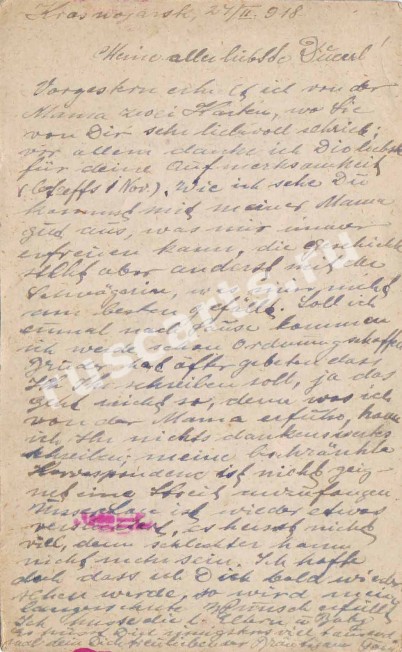 Krasnojarsk, 24/II. 918.
Meine allerliebste Ducerl!
Vorgestern erhielt ich von der
Mama zwei Karten, wo Sie
von Dir sehr liebevoll schrieb;
vor allem danke ich Dir liebste
für deine Aufmerksamkeit
(1 Nov). Wie ich sehe Du
kommst mit meiner Mama
gut aus, was mir immer
erfreuen kann, die Geschichte
steht aber anderst mit der
Schwägerin, nicht
am besten gefällt. Soll ich
einmal nach Hause kommen
ich werde schon Ordnung schaffen
hat öfter gebeten dass
ich schreiben soll, ja das
geht nicht so, denn was ich
von der Mama erfuhr, kann
ich Ihr nichts dankenswertes
schreiben; meine beschränkte
Korrespondenz ist nicht geeig-
net eine Streit anzufangen.
ist wieder etwas
es heisst nicht
viel, denn schlechter kann
nicht mehr sein. Ich hoffe
doch dass ich Dich bald wieder
sehen werde, so wird mein
langersehnte Wunsch erfüllt
Ich küsse die l. Eltern u. Baby
ruscarts.ru